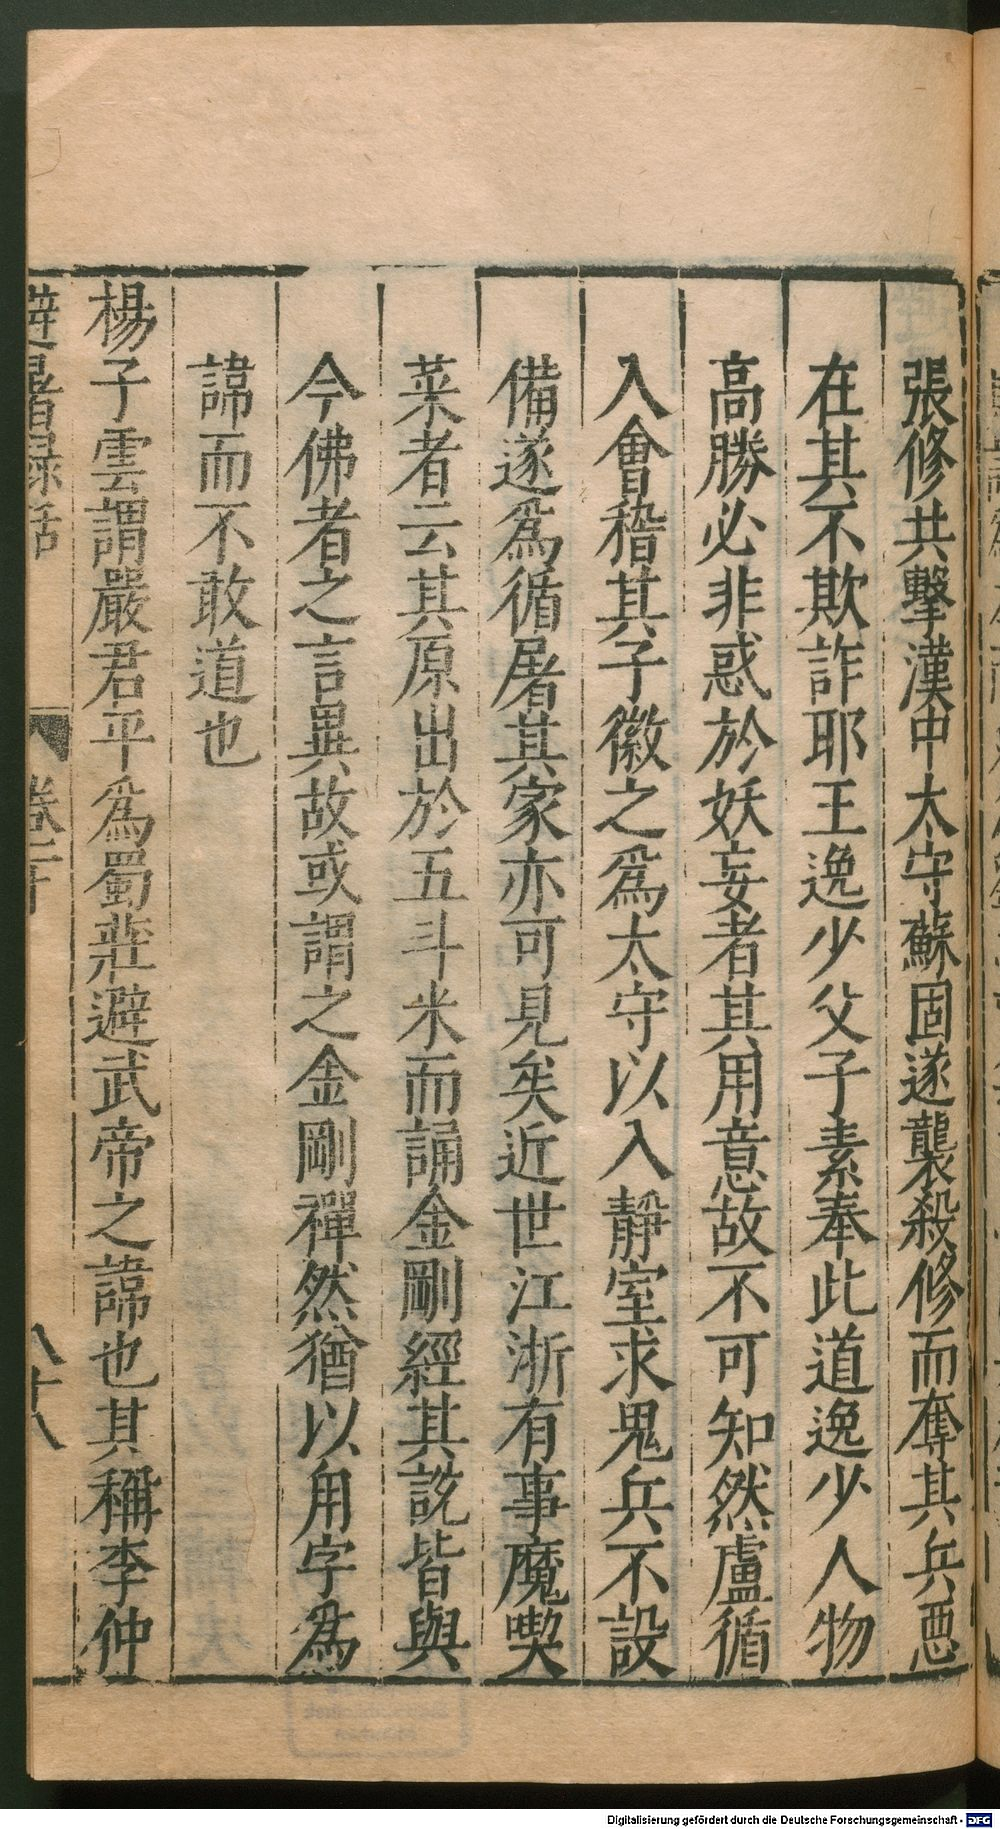 張修共擊漢中太守蘇固遂襲殺修而奪其兵惡
在其不欺詐耶王逸少父子素奉此道逸少人物
高勝必非惑於妖妄者其用意故不可知然盧循
入會稽其子徽之爲太守以入靜室求鬼兵不設
備遂爲循屠其家亦可見矣近世江浙有事魔喫
菜者云其原出於五斗米而誦金剛經其説皆與
今佛者之言異故或謂之金剛禪然猶以角字爲
諱而不敢道也
楊子雲謂嚴君平爲蜀莊避武帝之諱也其稱李仲
避暑録話 卷二 八十八
Digitalisierung gefördert durch die Deutsche Forschungsgemeinschaft - DFG